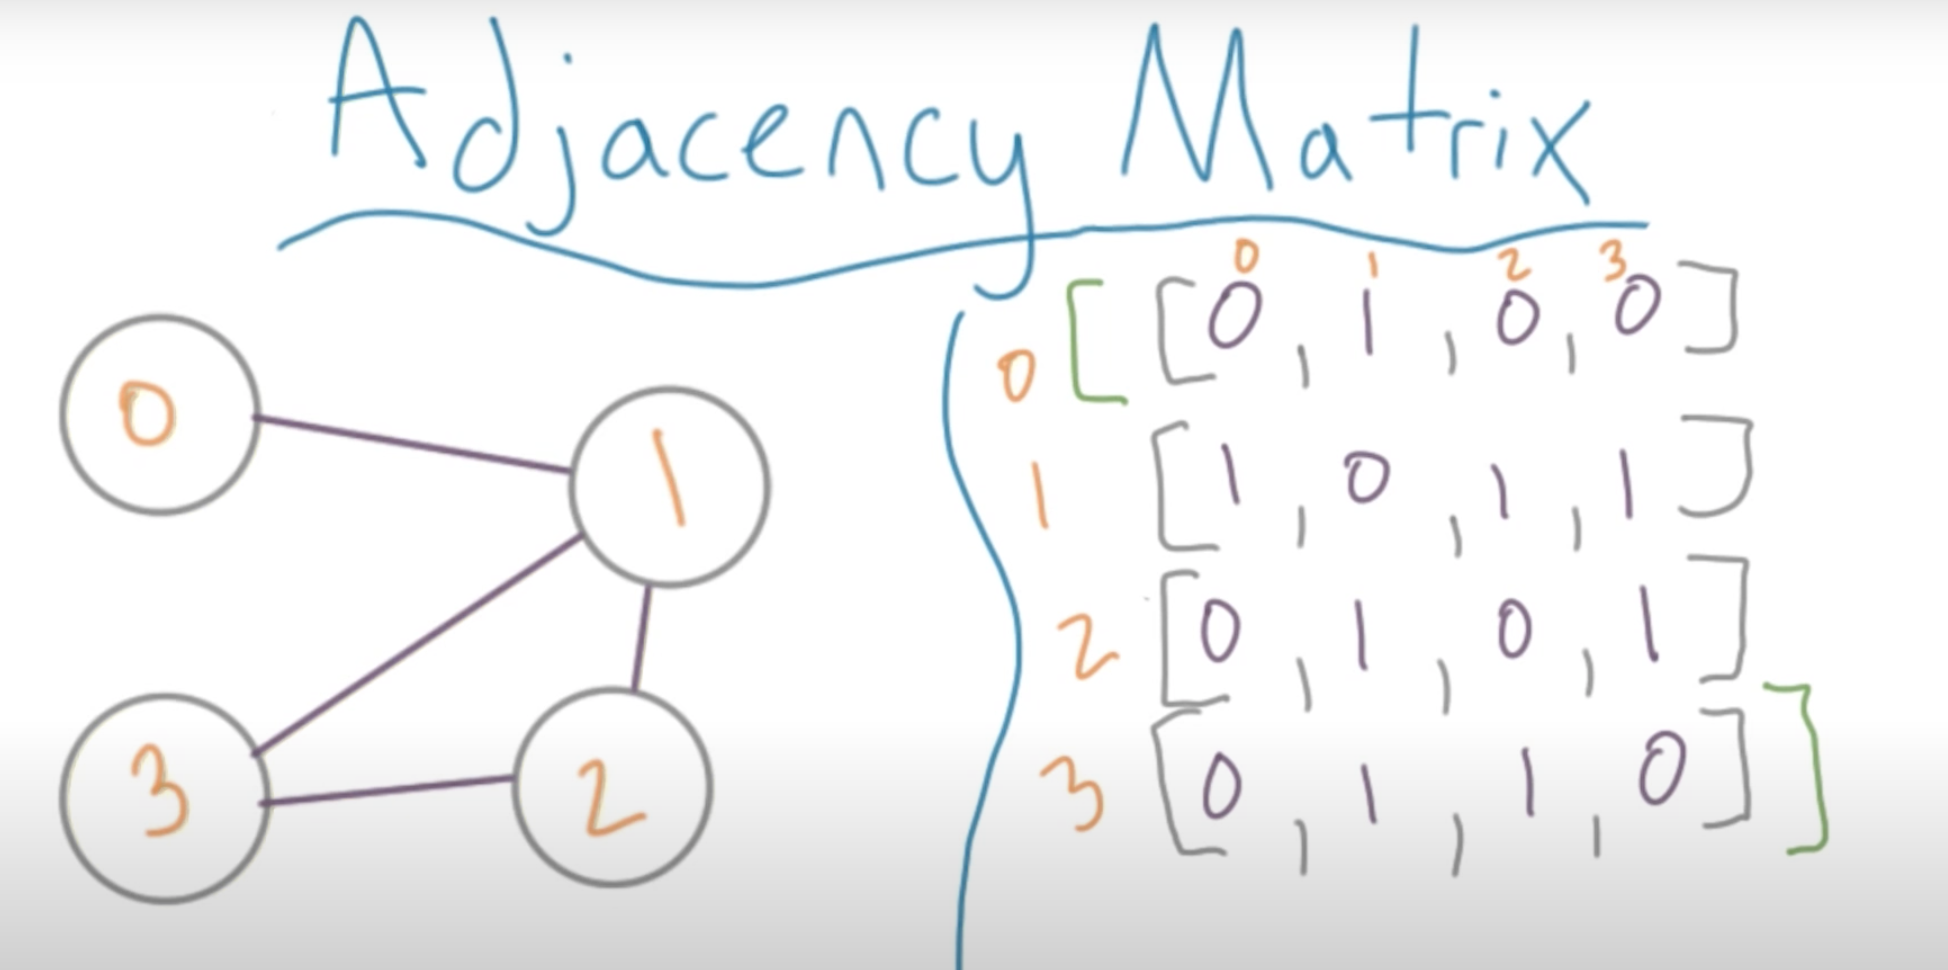 Adjacency Matrix
0 1 2 3
0 [ [ 0 , 1 , 0 , 0 ]
1 [ 1 , 0 , 1 , 1 ]
2 [ 0 , 1 , 0 , 1 ]
3 [ 0 , 1 , 1 , 0 ] ]
0
1
3
2